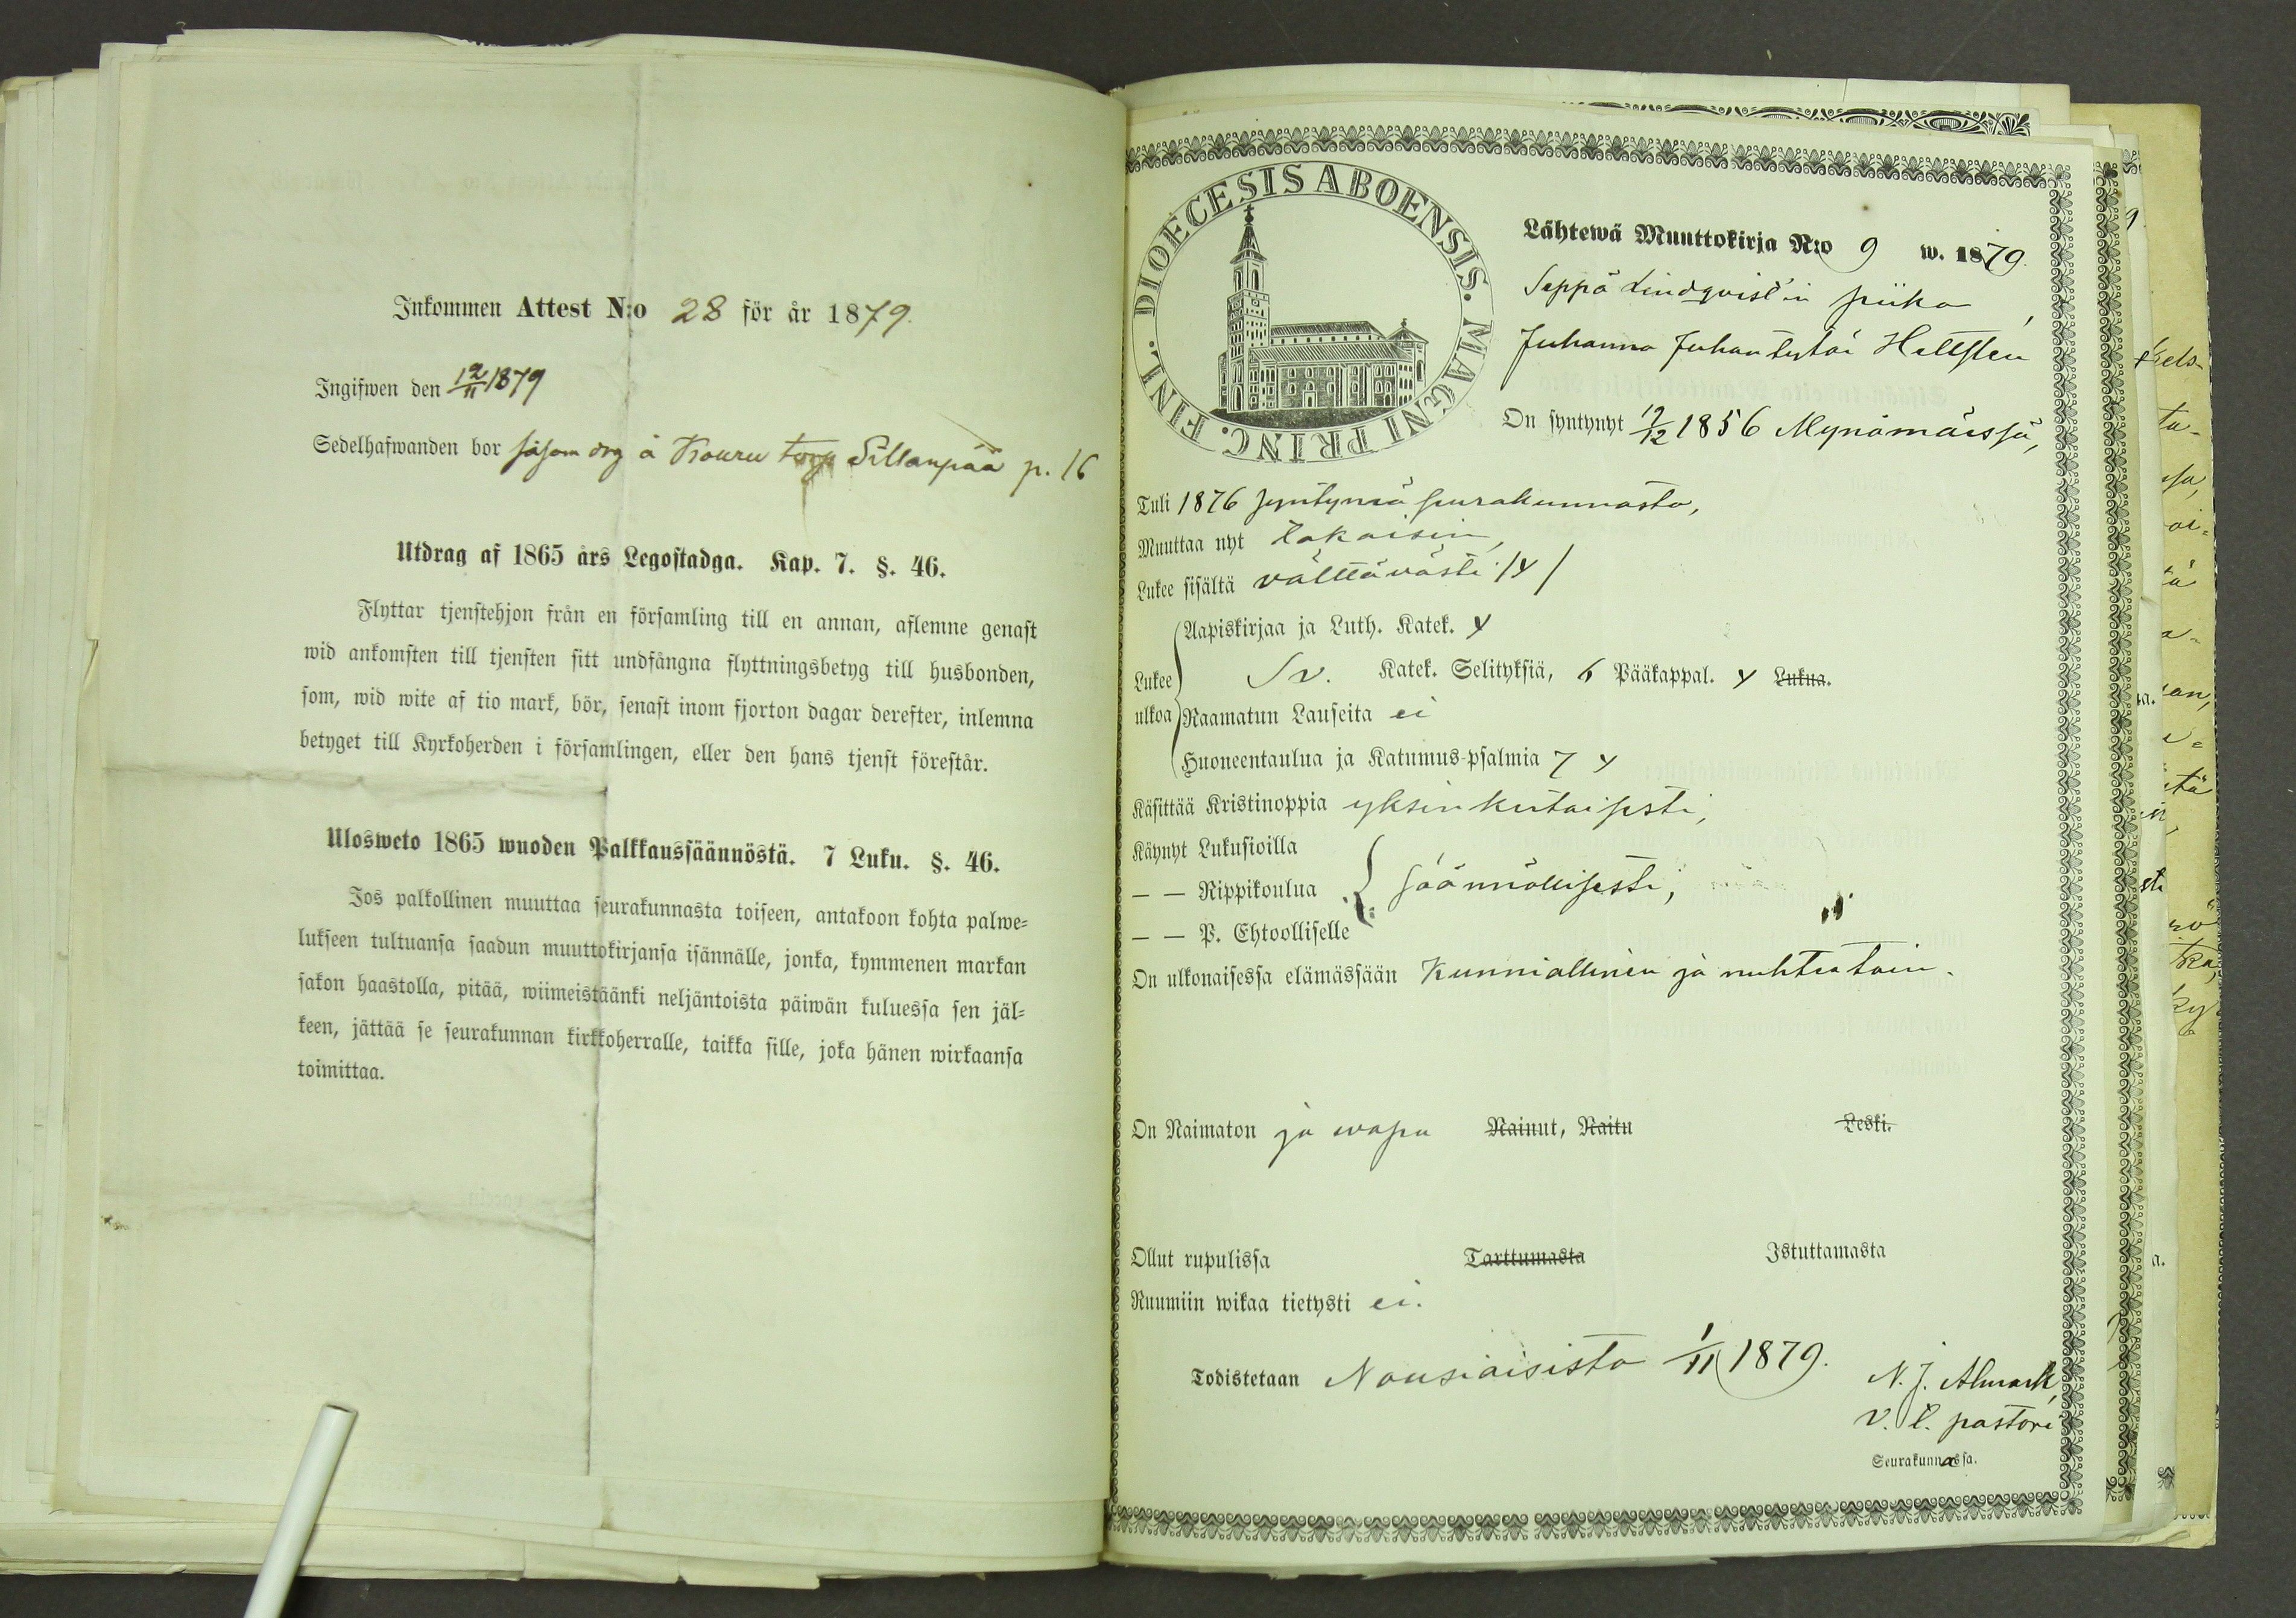 Inkommen Attest N:o 28 för år 1879.
Ingifwen den 12/11 1879
Sedelhafwanden bor såsom drg å Kouru torp Sillanpää p. 16
Utdrag af 1865 års Legostadga. Kap. 7. §. 46.
Flyttar tjenstehjon från en församling till en annan, aflemne genast
wid ankomsten till tjensten sitt undfångna flyttningsbetyg till husbonden,
som, wid wite af tio mark, bör, senast inom fjorton dagar derefter, inlemna
betyget till Kyrkoherden i församlingen, eller den hans tjenst förestår.
Ulosweto 1865 wuoden Palkkaussäännöstä. 7 Luku. §. 46.
Jos palkollinen muuttaa seurakunnasta toiseen, antakoon kohta palwe=
lukseen tultuansa saadun muuttokirjansa isännälle, jonka, kymmenen markan
sakon haastolla, pitää, wiimeistäänki neljäntoista päiwän kuluessa sen jäl=
keen, jättää se seurakunnan kirkkoherralle, taikka sille, joka hänen wirkaansa
toimittaa.
DIOECESIS ABOENSIS. MAGNI PRINC. FINL.
Lähtewä Muuttokirja N:o 9 w. 1879.
Seppä Lindqvist'in piika,
Juhanna Juhantytär Hellsten
On syntynyt 12/12 1856 Mynämäessä,
Tuli 1876 syntymä seurakunnasta,
Muuttaa nyt takaisin,
Lukee sisältä välttävästi /y/
Lukee ulkoa
Aapiskirjaa ja Luth. Katek. y
Sv. Katek. Selityksiä, 6 Pääkappal. y Lukua.
Raamatun Lauseita ei
Huoneentaulua ja Katumus-psalmia 7 y
Käsittää Kristinoppia yksinkertaisesti,
Käynyt Lukusioilla
— — Rippikoulua säännöllisesti,
— — P. Ehtoolliselle
On ulkonaisessa elämässään Kunniallinen ja nuhteetoin.
On Naimaton ja wapa Nainut, Naitu Leski.
Ollut rupulissa Tarttumasta Istuttamasta
Ruumiin wikaa tietysti ei.
Todistetaan Nousiaisista 1/11 1879.
N. J. Almark,
v. t. pastori
Seurakunnassa.